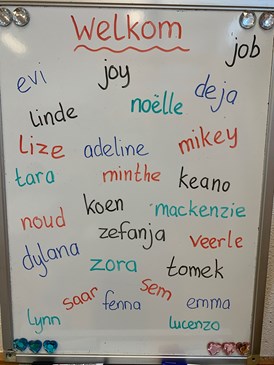 welkom
job
evi joy deja
linde noëlle
lize adeline mikey
tara minthe keano
noud koen mackenzie
zefanja veerle
dylana zora tomek
saar fenna sem emma
lynn lucenzo